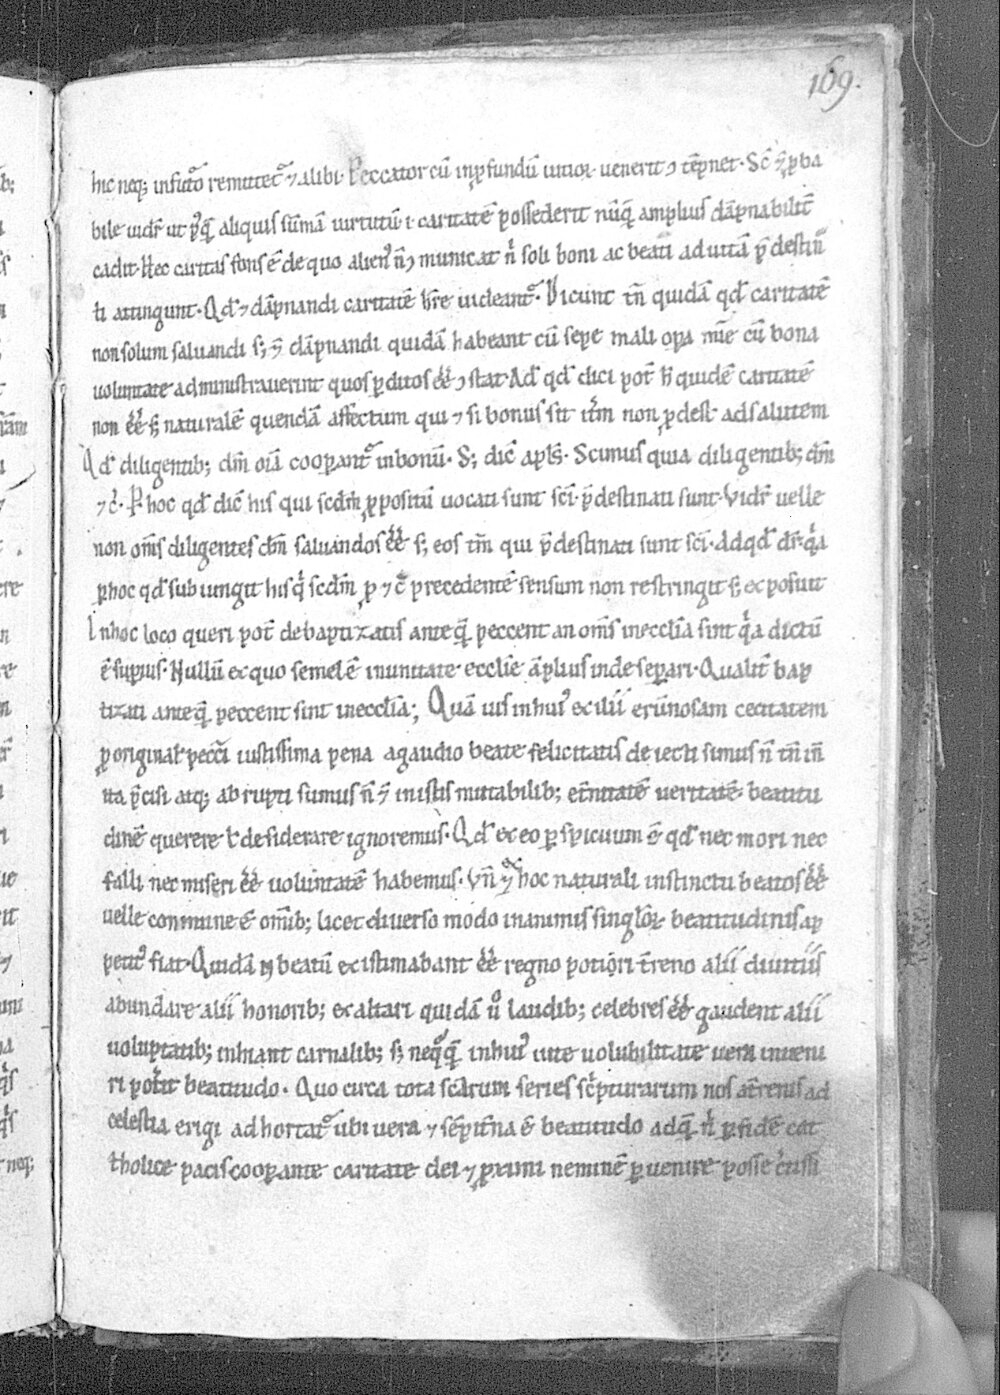 169.
hic neq; infut̃o remittet᷑ ⁊ alibi. Peccator cũ in ꝓfundũ uitioꝝ uenerit ꝯtẽpnet. Sʒ ⁊ ꝓba
bile uidr̃ ut pꝰq̃ aliquis sũmã uirtutũ .i. caritatẽ possederit nũq̃ amplius dãpnabilit̃
cadit. Hec caritas fons ẽ de quo alienꝰ ñ ꝯmunicat n̍ soli boni ac beati ad uitã p̃destin
ti attingunt. Qd̃ ⁊ dãpnandi caritatẽ hr̃e uideant᷑. Dicunt tñ quidã qd̃ caritatẽ
non solum saluandi s; ⁊ dãpnandi quidã habeant cũ sepe mali oꝑa mie cũ bona
uoluntate administrauerint quos ꝑditos ee̾ ꝯstat. Ad qd̃ dici pot̃ h̾ quidẽ caritatẽ
non ee̾ s; naturalẽ quendã affectum qui ⁊ si bonus sit it̃m non ꝓdest ad salutem
Qd̃ diligentib; dm̃ oĩa cooꝑant᷑ in bonũ. S; dic̃ apl̃s. Scimus quia diligentib; dm̃
⁊c̃. P hoc qd̃ dic̃ his qui scd̃m ꝓpositũ uocati sunt sc̃i p̃destinati sunt. Vidr̃ uelle
non om̃s diligentes dm̃ saluandos ee̾ s; eos tm̃ qui p̃destinati sunt sc̃i. Ad qd̃ dr̃ q̍a
ꝑ hoc qd̃ subiungit his q̍ scd̃m ꝓ ⁊c̃ precedentẽ sensum non restringit s; exposuit
In hoc loco queri pot̃ de baptizatis anteq̃ peccent an om̃s in eccl̃ia sint q̍a dictũ
ẽ suꝑius. Nullũ ex quo semel ẽ in unitate ecclie ãplius inde seꝑari. Qualit̃ bap
tizati anteq̃ peccent sint in eccl̃ia; Quã uis in huiꝰ exilii erũnosam cecitatem
ꝓ originali pecc̃i iustissima pena a gaudio beate felicitatis deiecti simus ñ tñ in
ita p̃cisi atq; abrupti sumus ñ ⁊ in istis mutabilib; et̃nitatẽ ueritatẽ beatitu
dinẽ querere l̃ desiderare ignoremus. Qd̃ ex eo ꝑspicuum ẽ qd̃ nec mori nec
falli nec miseri ee̾ uoluntatẽ habemus. Vñ ⁊ ex hoc naturali instinctu beatos ee̾
uelle commune ẽ omĩb; licet diuerso modo in animis singl̃oꝝ beatitudinis ap
petitꝰ fiat. Quidã .n. beatũ existimabant ee̾ regno potiori t̃reno alii diuitiis
abundare alii honorib; exaltari quidã u᷑o laudib; celebres ee̾ gaudent alii
uoluptatib; inhiant carnalib; s; neq̃q̃ in huiꝰ uite uolubilitate uera inueni
ri pot̃it beatitudo. Quo circa tota sc̃arum series sc̍pturarum nos a t̃renis ad
celestia erigi adhortat᷑ ubi uera ⁊ sẽpit̃na ẽ beatitudo ad q̃ n̍ ꝑ fidẽ cat
tholice pacis cooꝑante caritate dei ⁊ ꝓximi neminẽ ꝑuenire posse c̃tissi